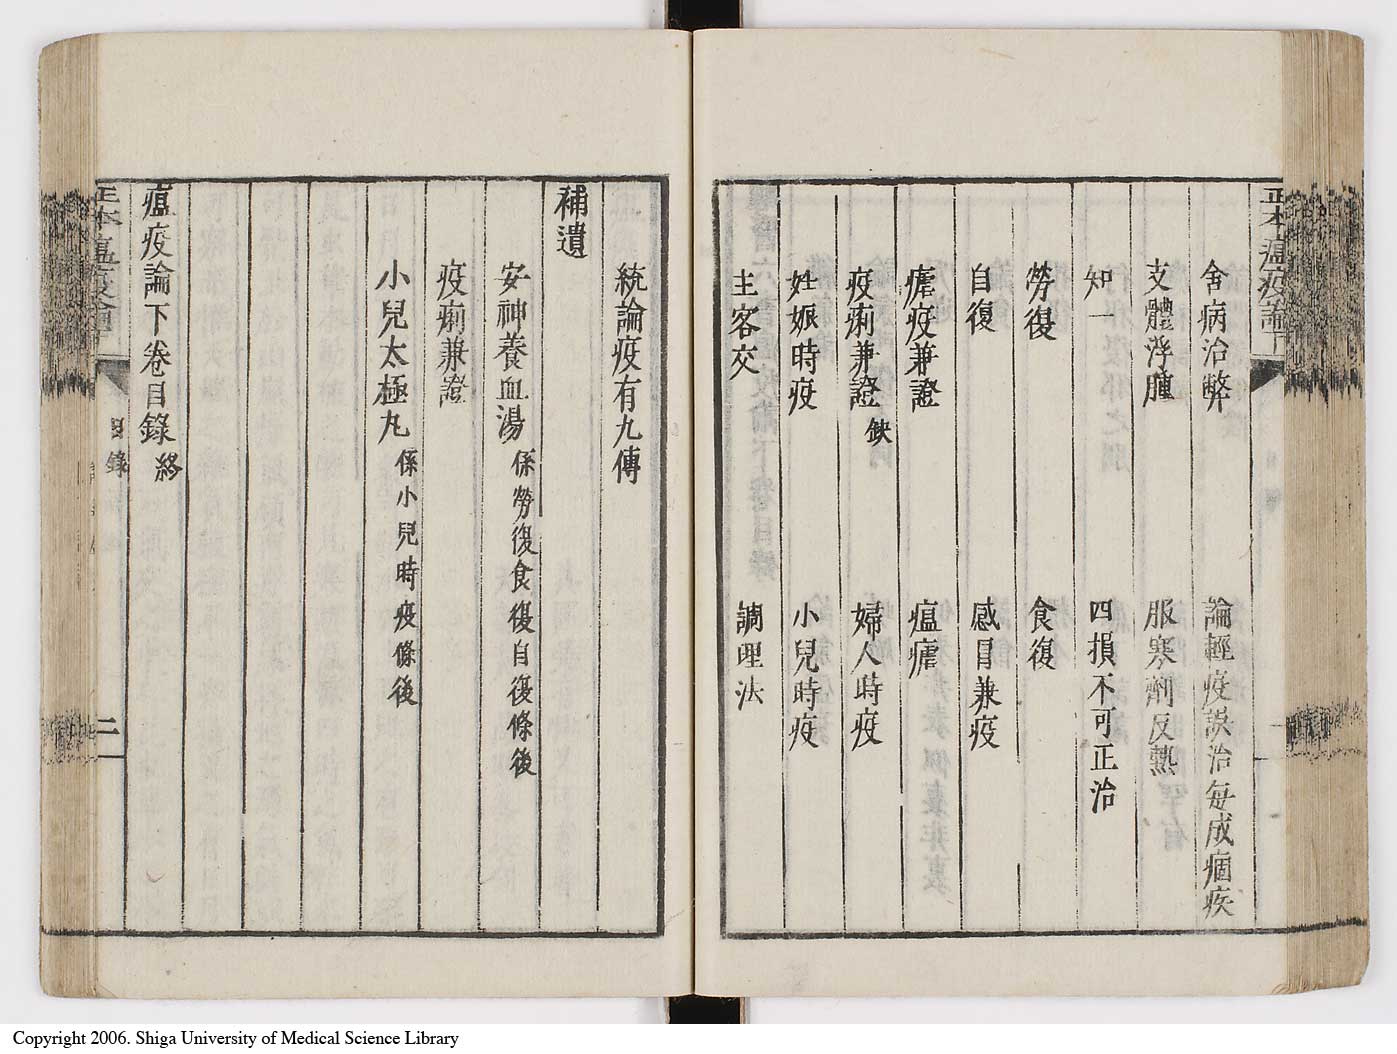 正本瘟疫論下
舍病治弊　論輕疫誤治每成痼疾
支體浮腫　服寒劑反熱
知一　四損不可正治
勞復　食復
自復　感冒兼疫
瘧疫兼證　瘟瘧
疫痢兼證缺　婦人時疫
妊娠時疫　小兒時疫
主客交　調理法
統論疫有九傳
補遺
安神養血湯 係勞復食復自復條後
疫痢兼證
小兒太極丸 係小兒時疫條後
瘟疫論下卷目錄終
正本瘟疫論下
目錄
二
Copyright 2006. Shiga University of Medical Science Library